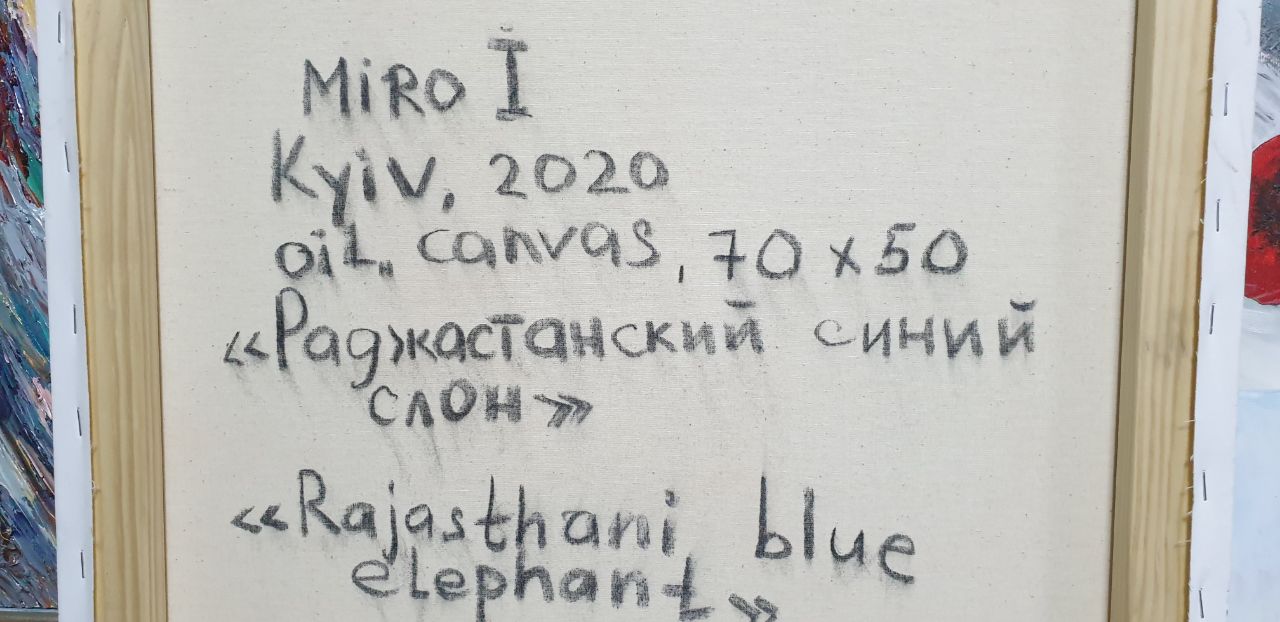 MiRO Ï
Kyiv, 2020
oil, canvas, 70 x 50
«Раджастанский синий
слон»
«Rajasthani blue
elephant»